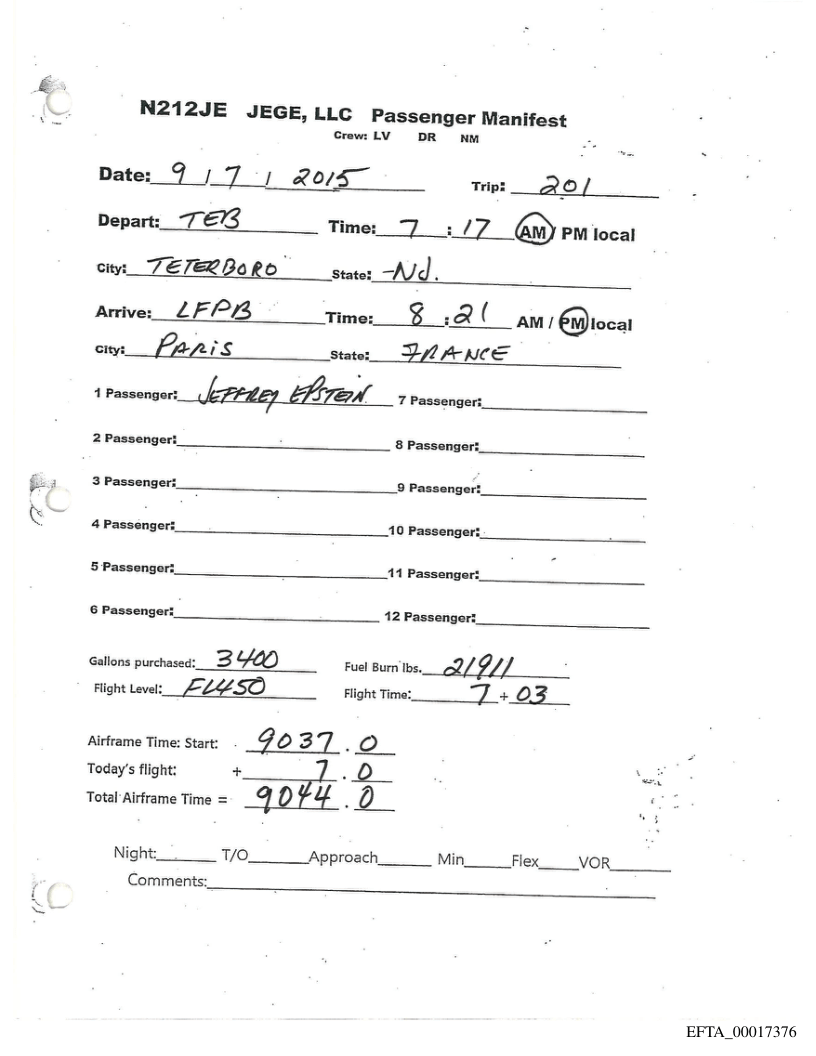 N212JE JEGE, LLC Passenger Manifest
Crew: LV DR NM
Date: 9 / 7 / 2015 Trip: 201
Depart: TEB Time: 7 : 17 AM / PM local
City: TETERBORO State: NJ.
Arrive: LFPB Time: 8 : 21 AM / PM local
City: PARIS State: FRANCE
1 Passenger: JEFFREY EPSTEIN 7 Passenger:
2 Passenger: 8 Passenger:
3 Passenger: 9 Passenger:
4 Passenger: 10 Passenger:
5 Passenger: 11 Passenger:
6 Passenger: 12 Passenger:
Gallons purchased: 3400 Fuel Burn lbs. 21911
Flight Level: FL450 Flight Time: 7 + 03
Airframe Time: Start: 9037.0
Today's flight: + 7.0
Total Airframe Time = 9044.0
Night: T/O Approach Min Flex VOR
Comments:
EFTA_00017376